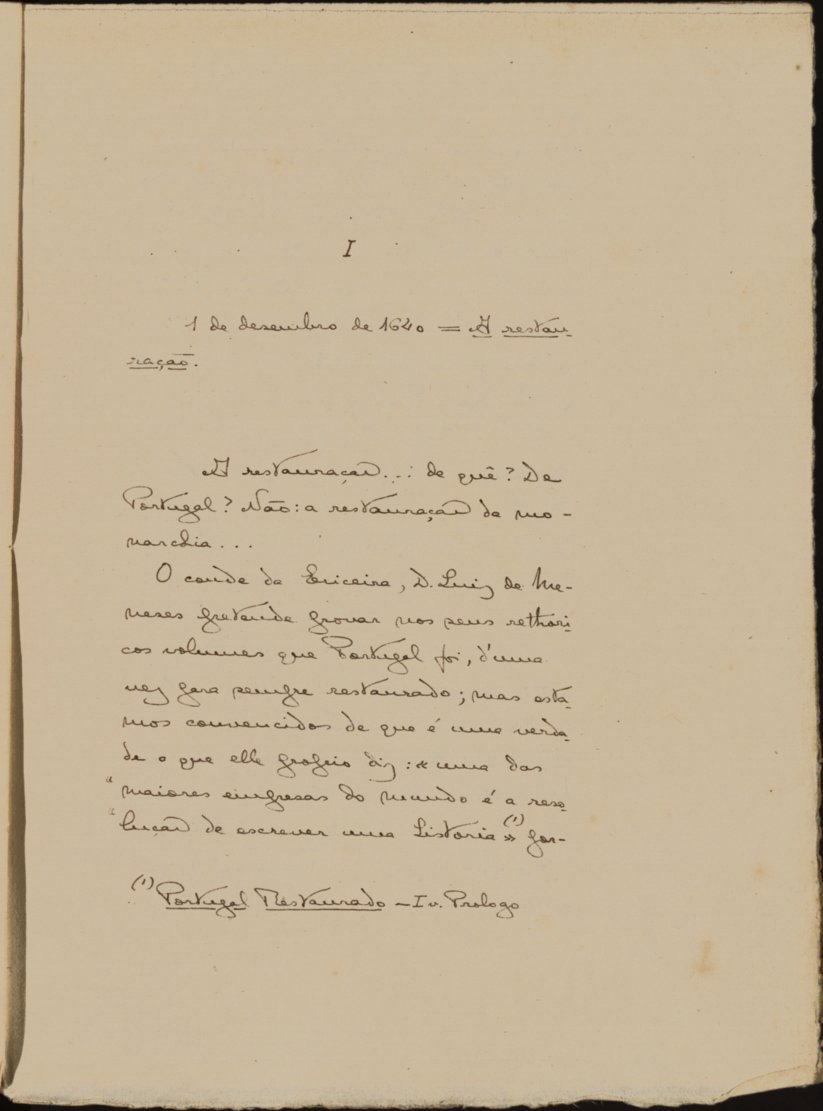 I
1 de desembro de 1640 = A restau-
ração.
A restauração... de quê? De
Portugal? Não: a restauração da mo-
narchia...
O conde da Ericeira, D. Luiz de Me-
neses pretende provar nos seus rethori-
cos volumes que Portugal foi, d'uma
vez para sempre restaurado; mas esta-
mos convencidos de que é uma verda-
de o que elle proprio diz: «uma das
"maiores empresas do mundo é a reso-
"lução de escrever uma historia» (1) por-
(1) Portugal Restaurado – I v. Prologo